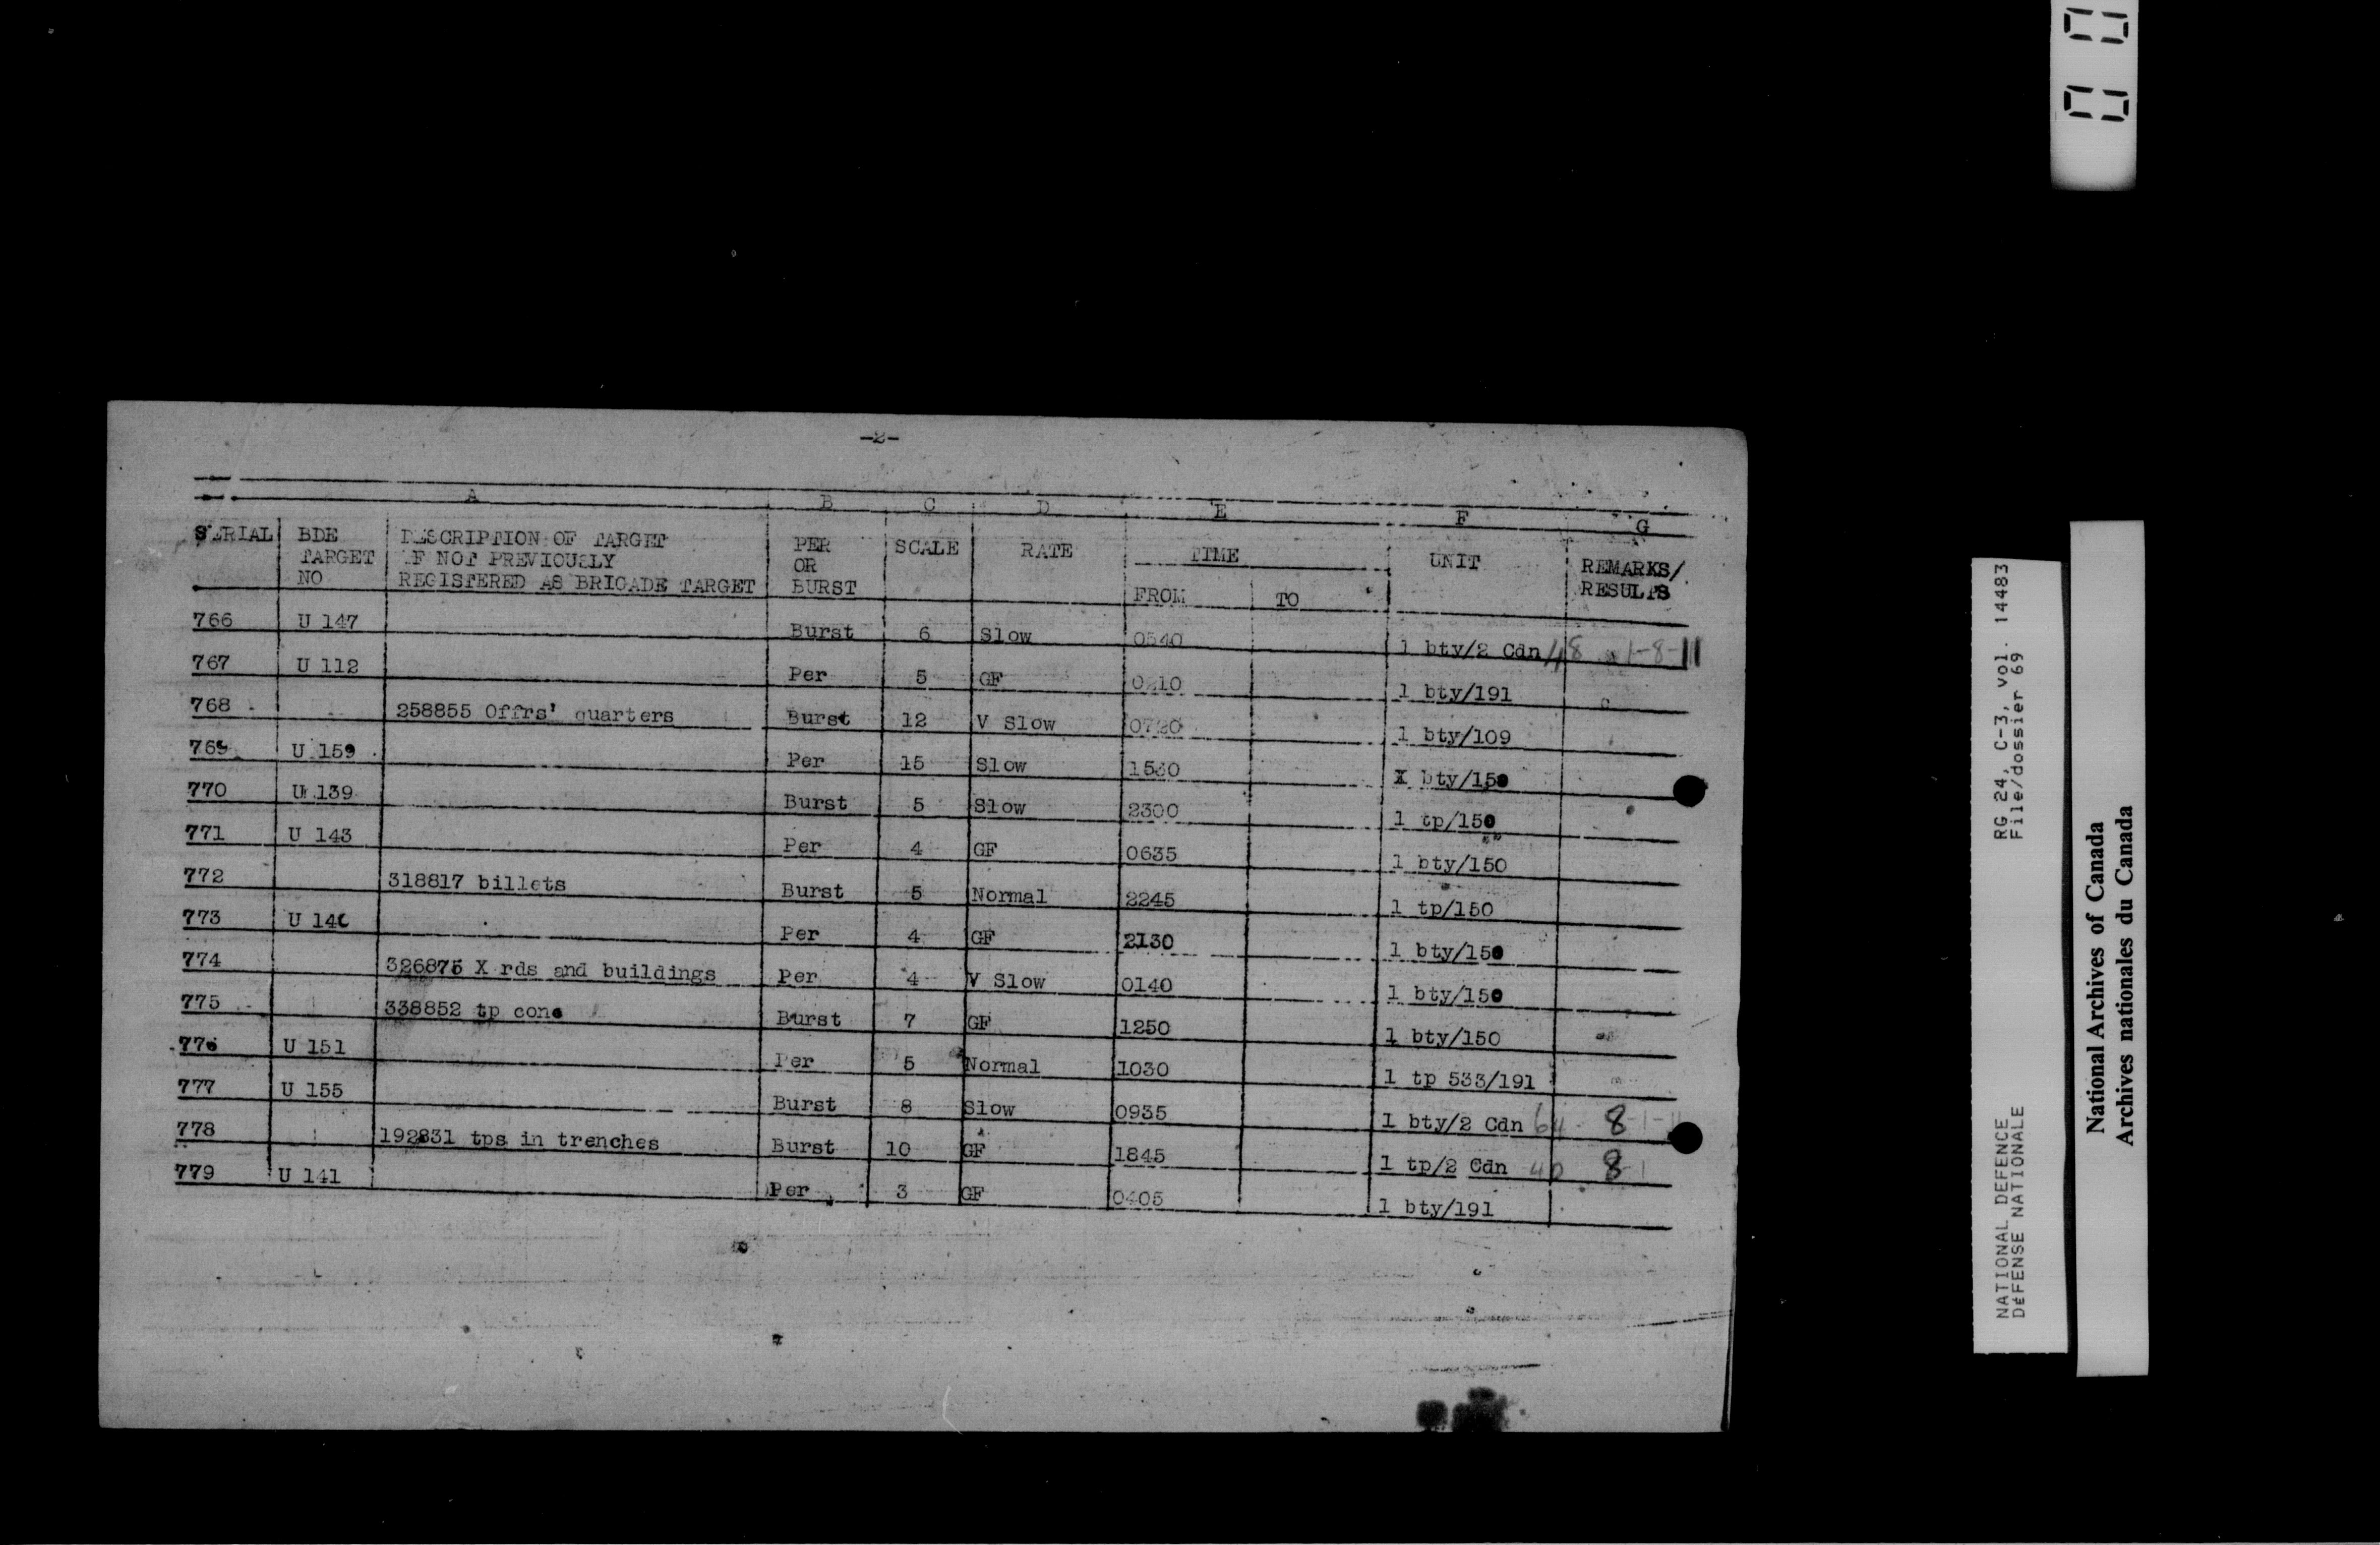 -2-
A B C D E F G
SERIAL BDE TARGET NO DESCRIPTION OF TARGET IF NOT PREVIOUSLY REGISTERED AS BRIGADE TARGET PER OR BURST SCALE RATE TIME FROM TO UNIT REMARKS/ RESULTS
766 U 147 Burst 6 Slow 0540 1 bty/2 Cdn 48 1-8-11
767 U 112 Per 5 GF 1 bty/191
768 258855 Offrs' quarters Burst 12 V Slow 0720 1 bty/109
769 U 159 Per 15 Slow 1530 bty/150
770 U 139 Burst 5 Slow 2300 1 tp/150
771 U 143 Per 4 GF 0635 1 bty/150
772 318817 billets Burst 5 Normal 2245 1 tp/150
773 Per 4 GF 2130 1 bty/150
774 326875 X rds and buildings Per 4 V Slow 0140 1 bty/150
775 338852 tp conc Burst 7 GF 1250 1 bty/150
776 U 151 Per 5 Normal 1030 1 tp 533/191
777 U 155 Burst 8 Slow 0935 1 bty/2 Cdn 64 8-1-11
778 192831 tps in trenches Burst 10 GF 1845 1 tp/2 Cdn 40 8-1
779 U 141 Per 3 GF 0405 1 bty/191
NATIONAL DEFENCE RG 24, C-3, vol. 14483
DÉFENSE NATIONALE File/dossier 69
National Archives of Canada
Archives nationales du Canada